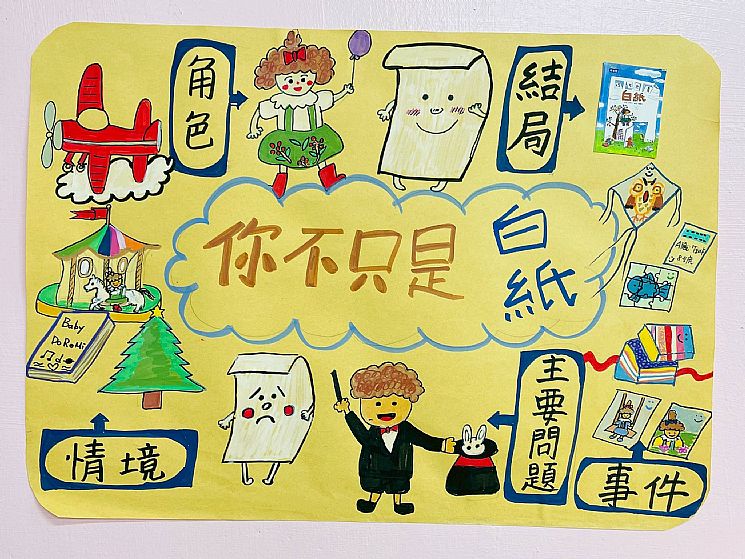 角色
結局
白紙
你不只是
白紙
Baby
DoReMi
主要問題
情境
事件